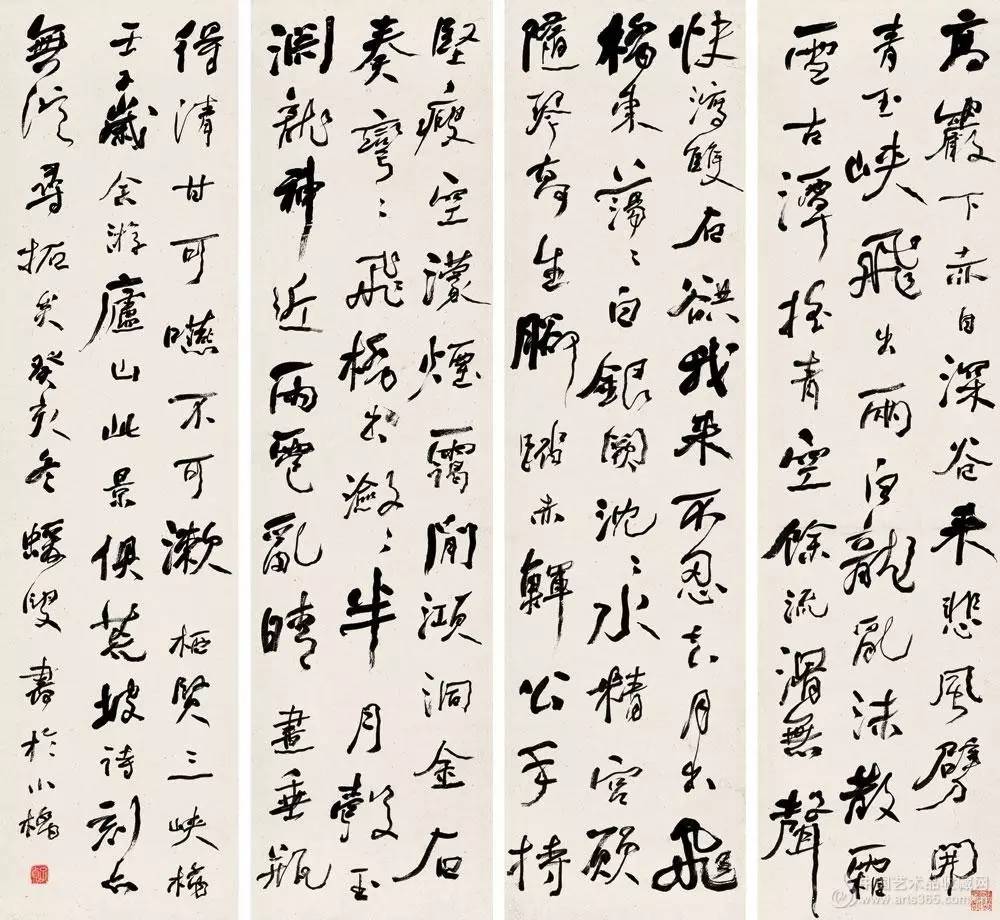 高巖下赤日深谷来悲風劈開
青玉峽飛出兩白龍亂沫散霜
雪古潭摇青空餘流滑無聲
快瀉雙石谼我来不忍去月出飛
橋東蕩〻白銀闕沈〻水精宮願
隨琴高生腳踏赤鯶公手持
堅瘦空濛煙靄間澒洞金石
奏彎〻飛橋出瀲〻半月彀玉
淵龍神近雨雹亂晴晝垂瓶
得清甘可嚥不可漱 栖賢三峽橋
壬子歲余游廬山此景俱荒坡詩刻亦
無從尋拓矣癸亥冬蝯叟書於小樓
中国艺术品收藏网
www.arts365.com